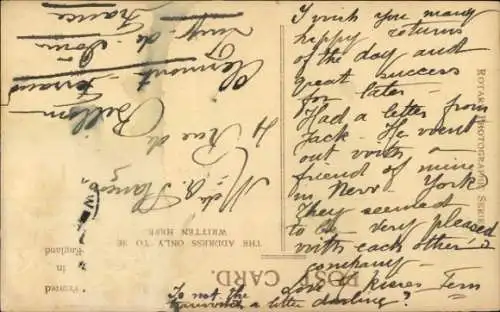 I wish you many
happy returns
of the day and
great success
for later –
Had a letter from
Jack – He went
out with a
friend of mine
in New York
They seemed
to be very pleased
with each other's
company –
Love & kisses Fern
Is not the
a letter darling?
4 Rue de
Clermont - Ferrand
Puy - de - Dôme
France
THE ADDRESS ONLY TO BE
WRITTEN HERE
POST CARD.
ROTARY PHOTOGRAPHIC SERIES
Printed
in
England